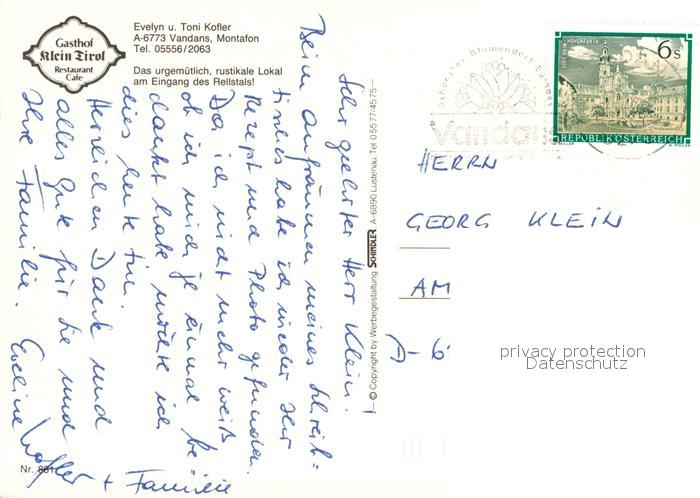 Gasthof
Klein Tirol
Restaurant
Cafe
Evelyn u. Toni Kofler
A-6773 Vandans, Montafon
Tel. 05556/2063
Das urgemütlich, rustikale Lokal
am Eingang des Rellstals!
Sehr geehrter Herr Klein!
Beim aufräumen meines Schreib=
tisches habe ich wieder Ihr
Rezept und Photo gefunden.
Da ich nicht mehr weiß
ob ich mich je einmal be=
dankt habe möchte ich
dies heute tun.
Herzlichen Dank und
alles Gute für Sie und
Ihre Familie.
Eveline Kofler
+ Familie
Nr. 881
© Copyright by Werbegestaltung SCHINDLER A-6890 Lustenau, Tel 05577/4575
Schönstes Blumendorf Europas
Vandans
6s
STIFT REIN-HOHENFURTH
REPUBLIK ÖSTERREICH
HERRN
GEORG KLEIN
AM
A-6
privacy protection
Datenschutz